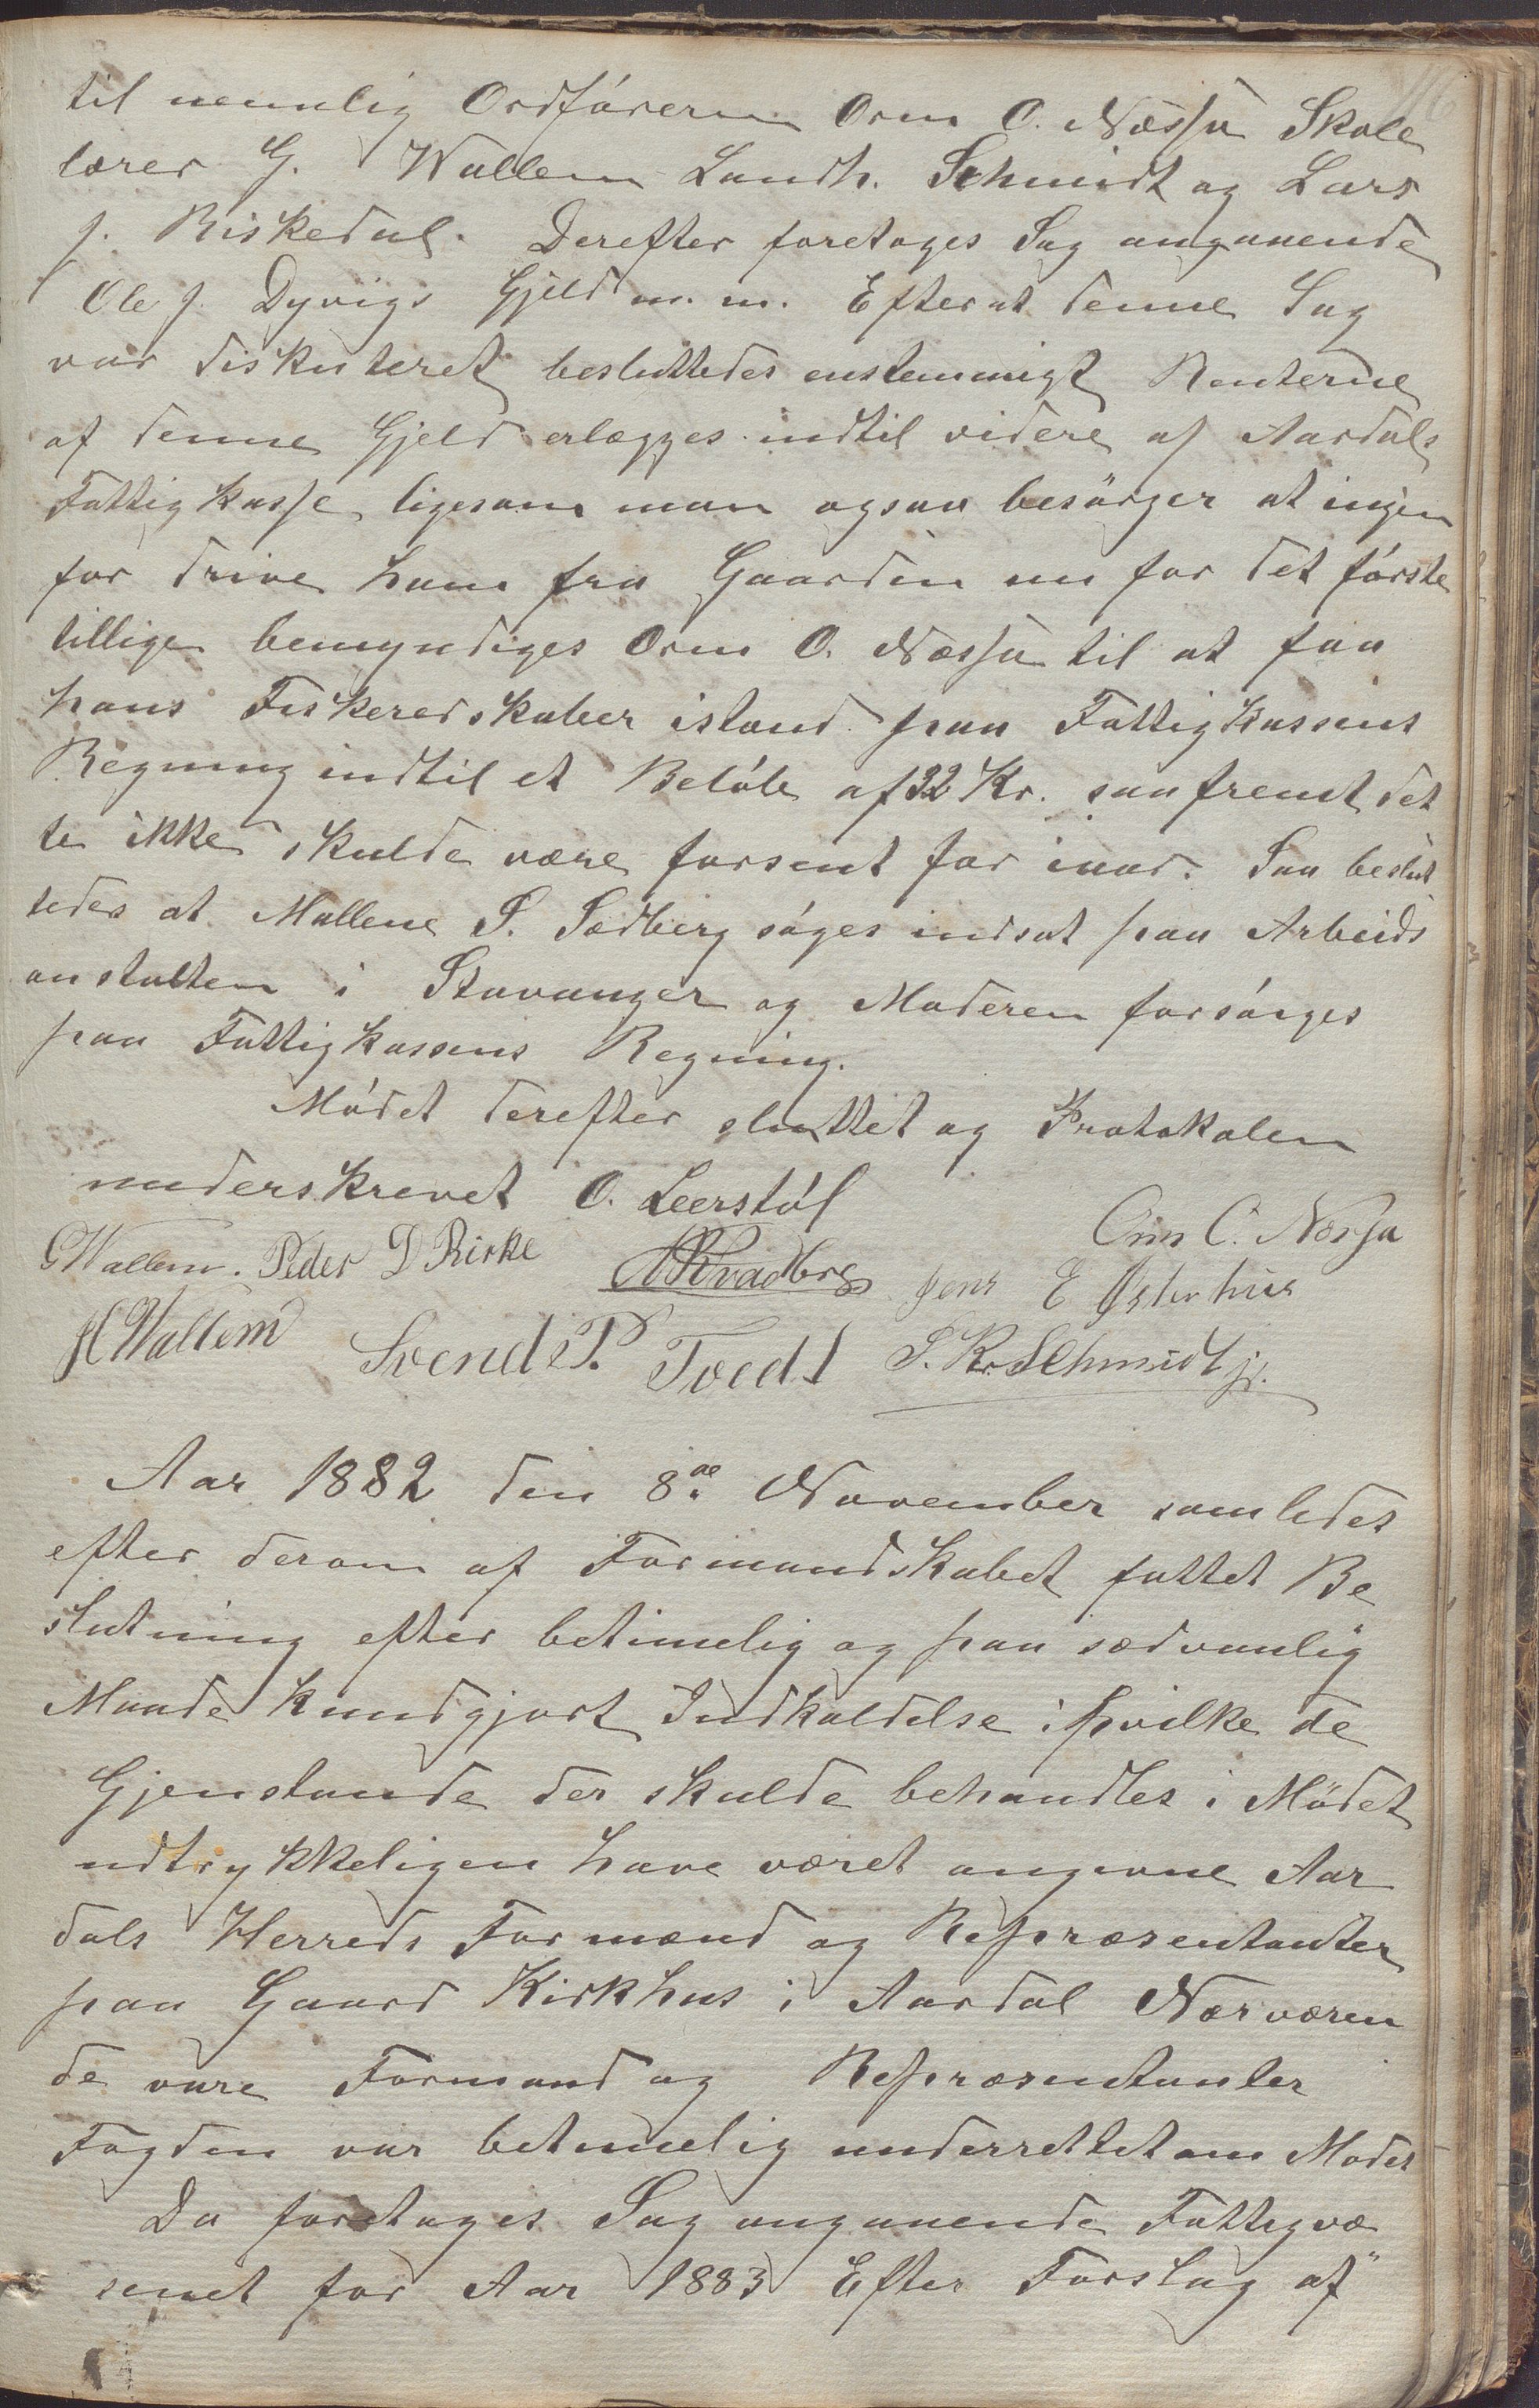 116
til nemlig Ordføreren Orm O. Næssa Skole
lærer G. Wallem Landh. Schmidt og Lars
J. Riskedal. Derefter foretages Sag angaaende
Ole J. Dyvigs Gjeld m. m. Efterat denne Sag
var diskuteret besluttedes enstemmigt Renterne
af denne Gjeld erlægges indtil videre af Aardals
Fattigkasse, ligesom man ogsaa besörger at ingen
for drive ham fra Gaarden nu for det første
tillige bemyndiges Orm O. Næssa til at faa
hans Fiskeredskaber istand paa Fattigkassens
Regning indtil et Beløb af 32 Kr. saafremt det
te ikke skulde være forsent for iaar. Saa beslut
tedes at Mallene S. Sædberg søges indsat paa Arbeids
anstalten i Stavanger og Moderen forsørges
paa Fattigkassens Regning.
Mødet derefter sluttet og Protokolen
underskrevet O. Leerstøl
Orm O. Næssa
G Wallem. Peder D Rirke A Kvadberg Jens E Østerhus
H Wallem Svend P. Tvedt S. Kr. Schmidt jr.
Aar 1882 den 8de November samledes
efter derom af Formandskabet fattet Be
slutning efter betimelig og paa sædvanlig
Maade kundgjort Indkaldelse i hvilke de
Gjenstande der skulde behandles i Mödet
udtrykkeligen have været angivne Aar
dals Herreds Formænd og Repræsentanter
paa Gaard Kirkhus i Aardal Nærværen
de vare Formænd og Repræsentanter
Fogden var betimelig underrettet om Modet
Da foretages Sag angaaende Fattigvæ
senet for Aar 1883 Efter Forslag af